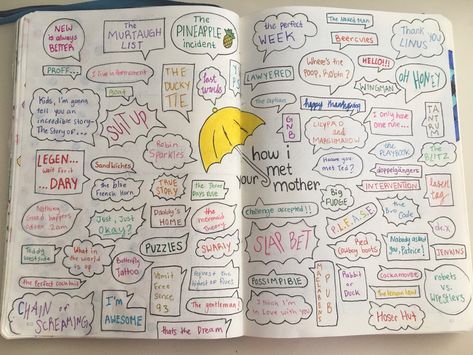 NEW
is always
BETTER
The
MURTAUGH
LIST
The
PINEAPPLE
incident
PROFF...
I live in torment
THE
DUCKY
TIE
last
words
Kids, I'm gonna
tell you an
incredible story-
The story of...
SUIT UP
Robin
Sparkles
LEGEN...
wait for it
DARY
Sandwiches
the blue
French Horn
TRUE
STORY
THE THREE
DAYS RULE
Nothing
Good happens
after 2am
Just, Just
Okay?
Daddy's
HOME
the
mermaid
Theory
Teddy
Westside
What in
the world
is up
Butterfly
Tattoo
PUZZLES
SWARLY
the Perfect cocktail
Vomit
Free
Since
93
CHAIN of
SCREAMING
I'm
AWESOME
The gentleman
thats the Dream
how i
met
your mother
the perfect
WEEK
The Naked Man
Beercules
Thank you
LINUS
LAWYERED
Where's the
Poop, Robin?
HELLO!!!
WINGMAN
oh HONEY
The Captain
happy thanksgiving
GNB
LILYPAD
and
MARSHMALLOW
I only have
one rule...
TANTRUM
Haaave you
met Ted?
the
PLAYBOOK
The
BLITZ
doppelgängers
INTERVENTION
laser
tag
BIG
FUDGE
Challenge accepted!!
P.L.E.A.S.E
the
Bro
Code
d.c.x
SLAP BET
Red
Cowboy boots
Nobody asked
you, Patrice!
JENKINS
POSSIMPIBLE
MACLARENS
PUB
Rabbit
or
Duck
Cockamouse
The lemon law
robots
vs.
Wrestlers
I think I'm
in Love with you
Hoser Hut